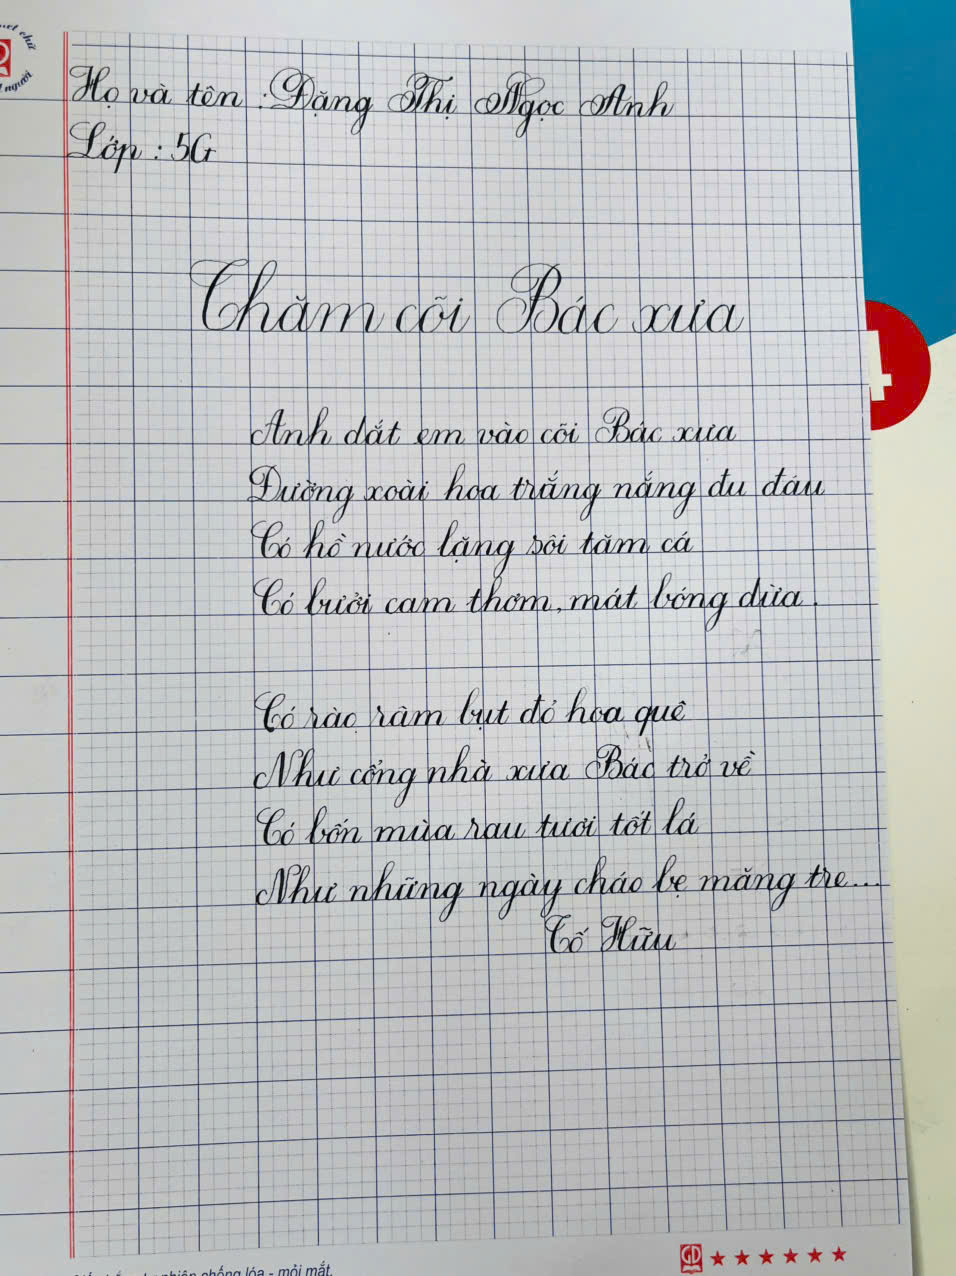 nét chữ
người
Họ và tên : Đặng Thị Ngọc Anh
Lớp : 5G
4
Thăm cõi Bác xưa
Anh dắt em vào cõi Bác xưa
Đường xoài hoa trắng nắng đu đưa
Có hồ nước lặng sôi tăm cá
Có bưởi cam thơm, mát bóng dừa.
Có rào râm bụt đỏ hoa quê
Như cổng nhà xưa Bác trở về
Có bốn mùa rau tươi tốt lá
Như những ngày cháo bẹ măng tre...
Tố Hữu
chống lóa - mỏi mắt.
GD